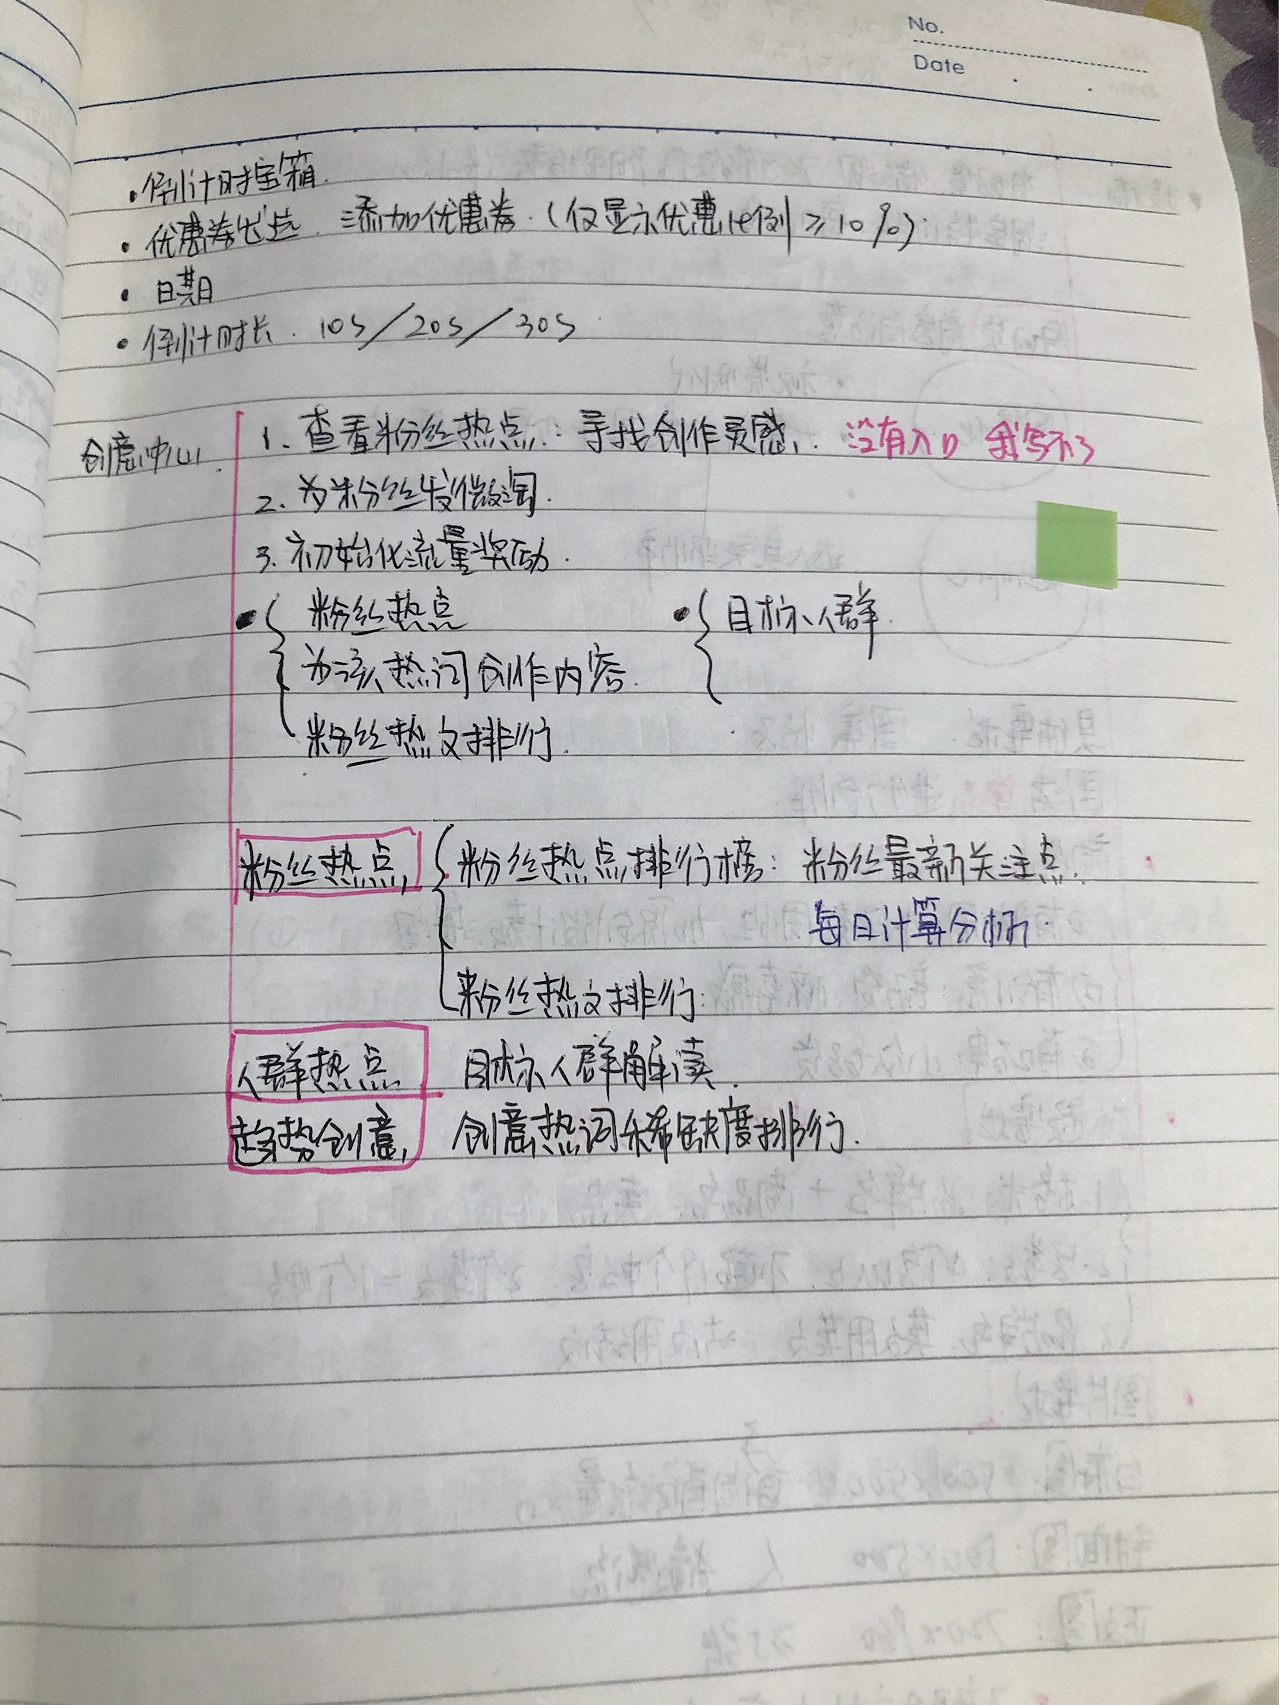 No.
Date
· 倒计时宝箱.
· 优惠券 添加优惠券.(仅显示优惠比例≥10%).
· 日期
· 倒计时长. 10s/20s/30s
创意中心.
1. 查看粉丝热点:寻找创作灵感, 没有入口 我写不了
2. 为粉丝发微淘.
3. 初始化流量奖励.
· { 粉丝热点 · { 目标人群.
为该热词创作内容.
粉丝热文排行.
粉丝热点, { 粉丝热点排行榜:粉丝最新关注点.
每日计算分析.
粉丝热文排行:
人群热点 目标人群解读.
趋势创意, 创意热词稀缺度排行.